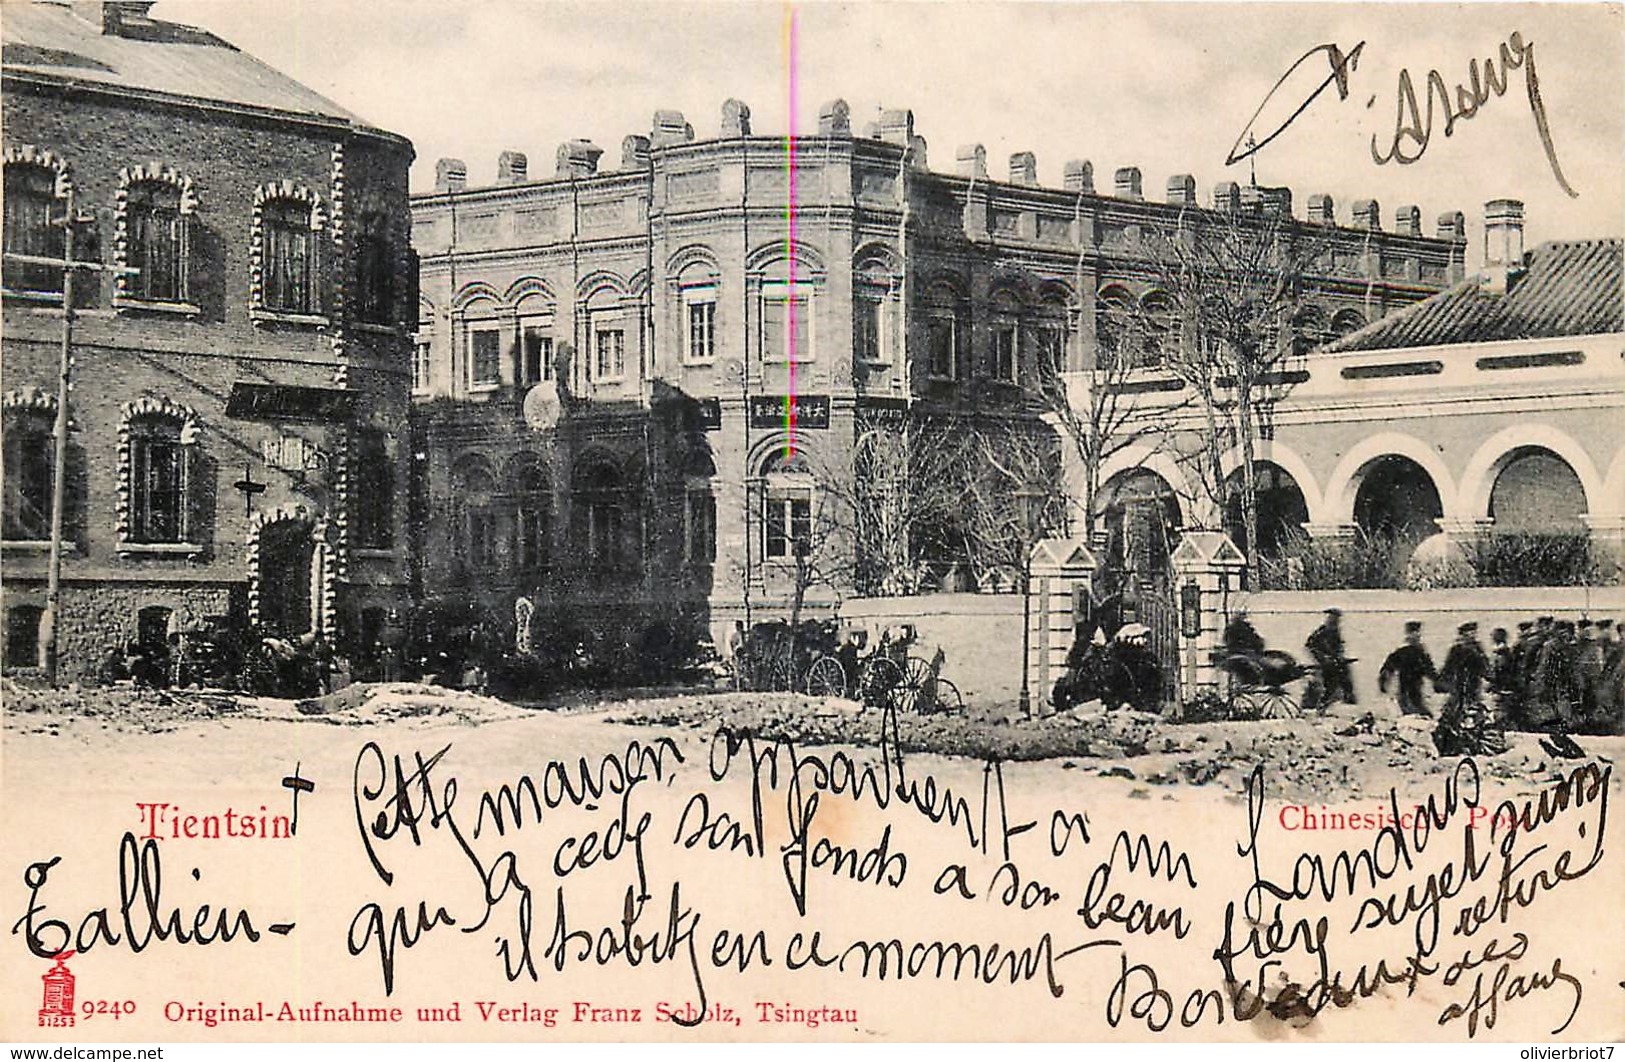 大清郵政津局
Tientsin
Chinesische Post
Cette maison appartient a un Landais
qui a cédé son fonds a son beau frère sujet suisse
il habite en ce moment Bordeaux retiré
des affaires
Tallien-
9240 Original-Aufnahme und Verlag Franz Scholz, Tsingtau
B1253
www.delcampe.net
olivierbriot7